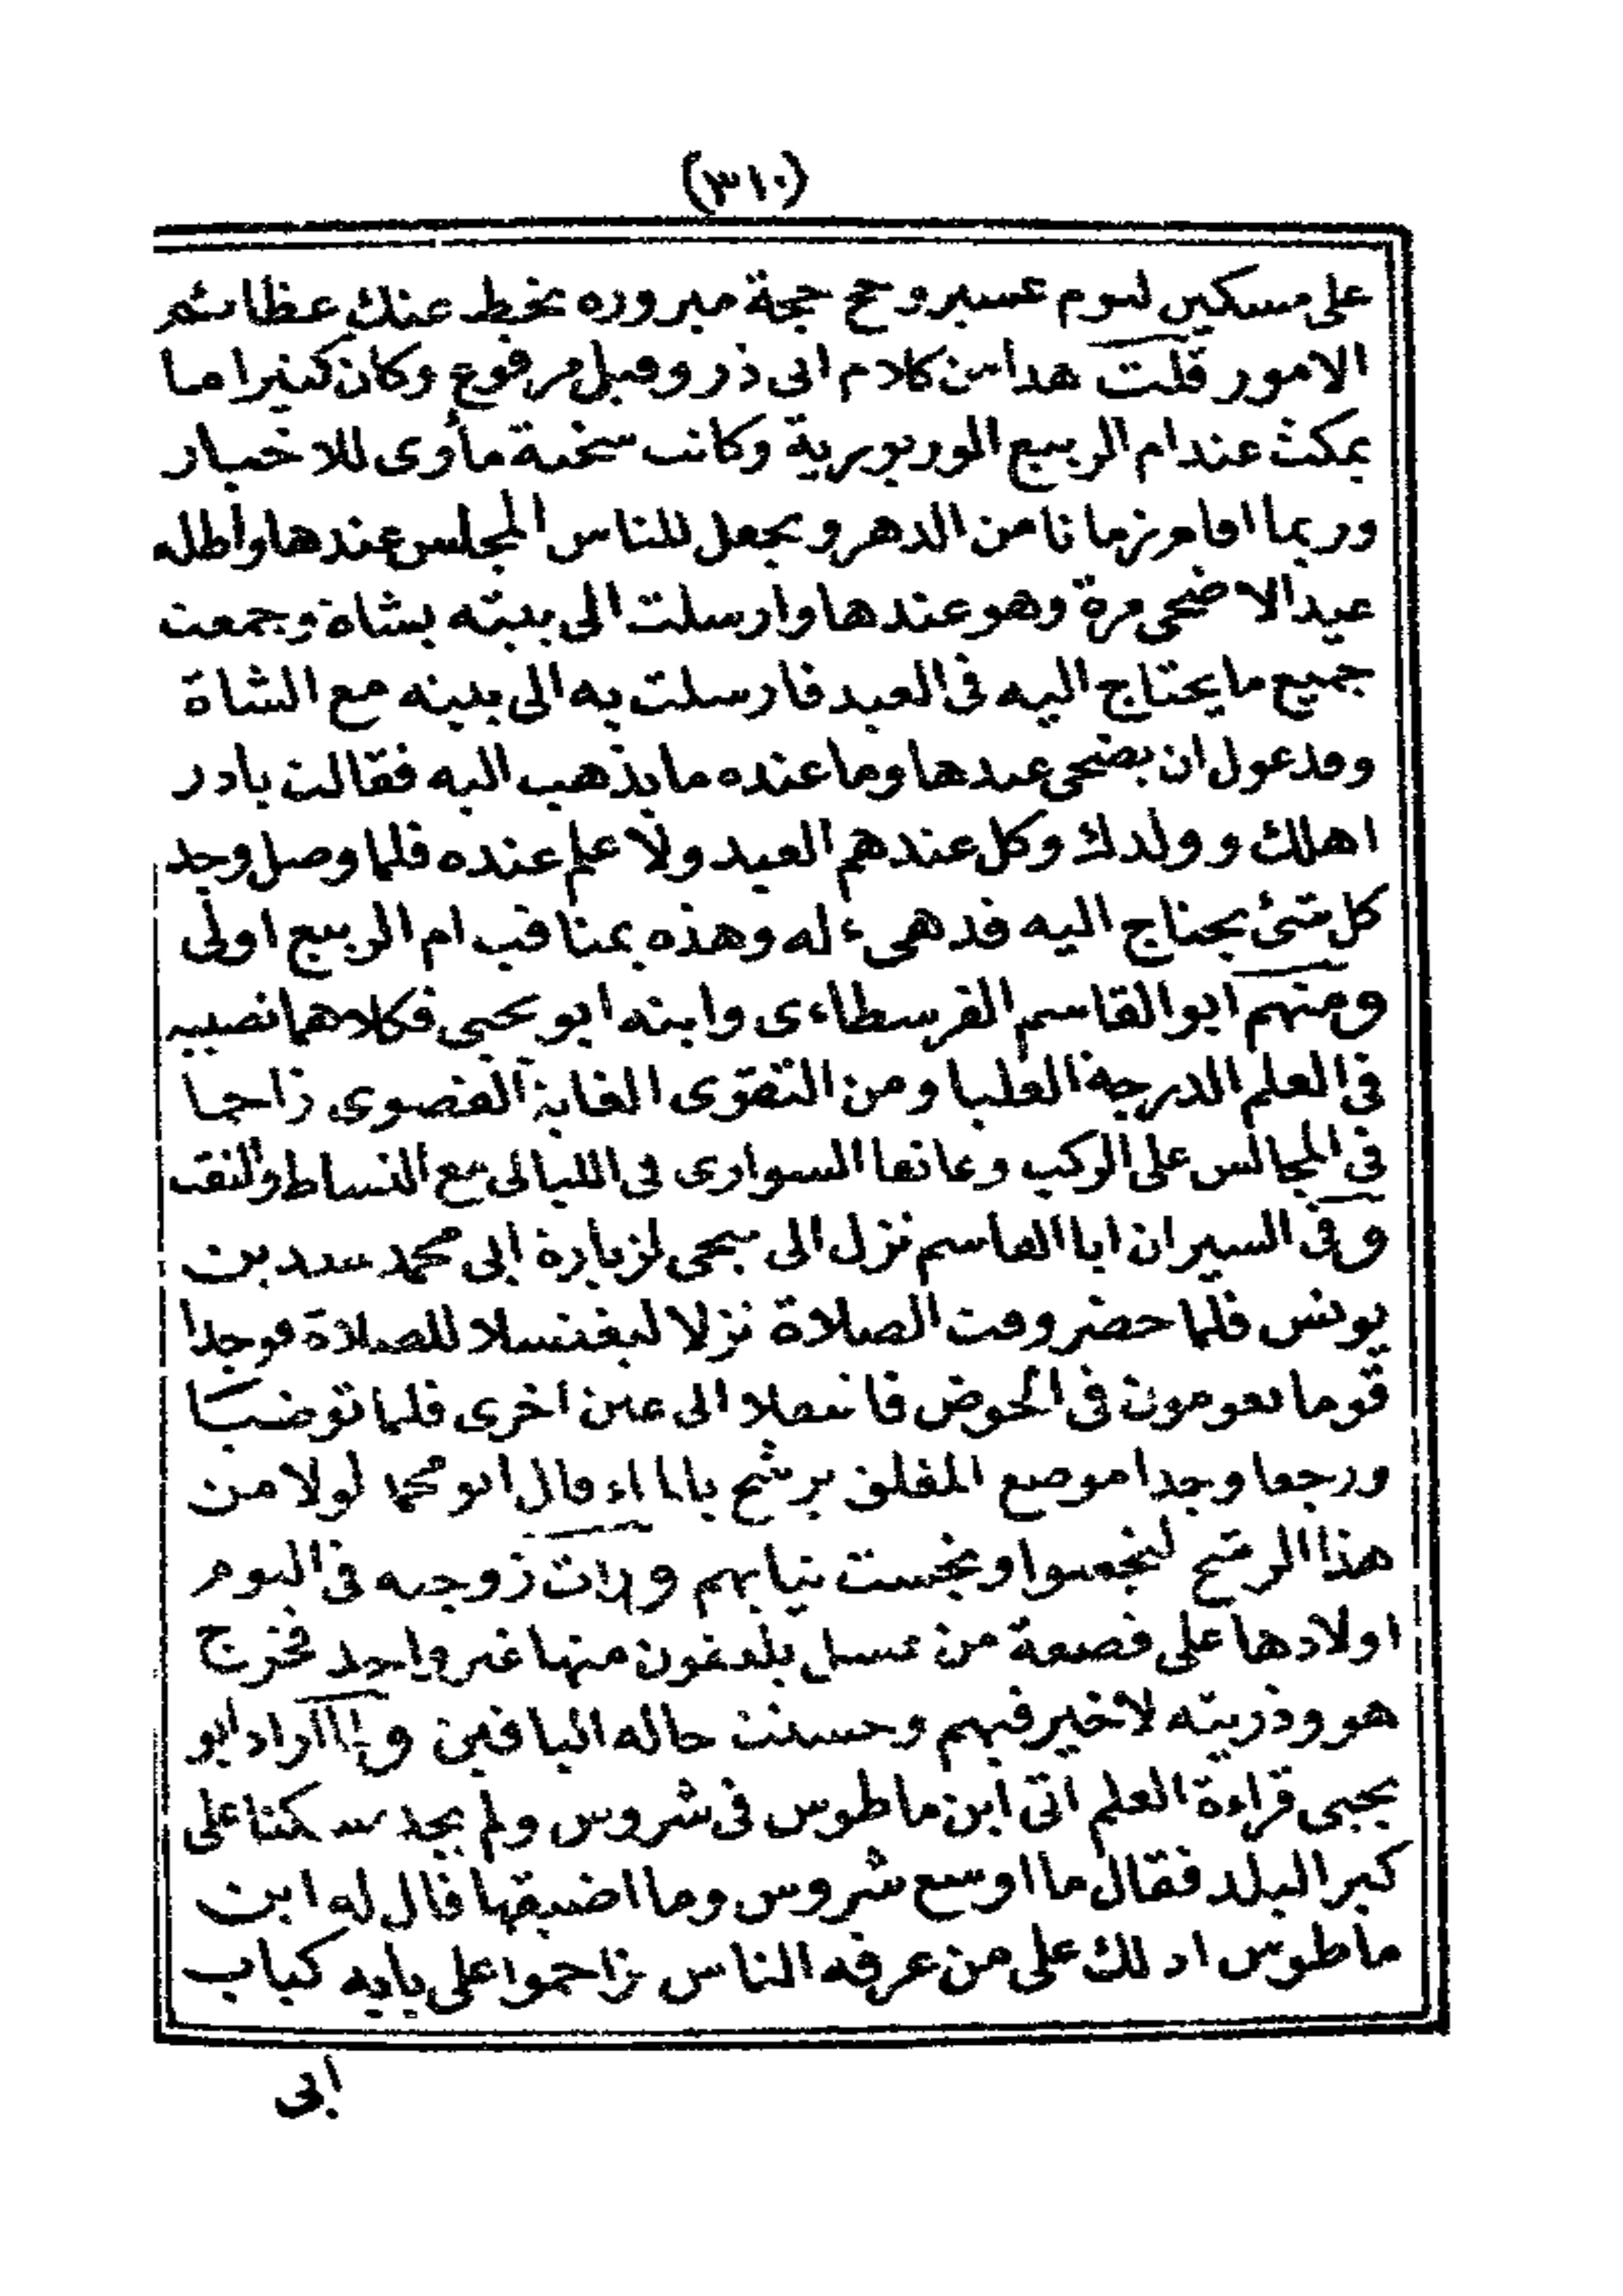 (٣١٠)
على مسكين ليوم عسير وحج حجة مبروره تحط عنك عظائم
الامور قلت هذا من كلام ابى ذر وقيل مرفوع وكان كثيرا ما
يمكث عند ام الربيع الوريورية وكانت سخية مأوى للاخيار
وربما اقام زمانا من الدهر ويجعل للناس المجلس عندها واظله
عيد الاضحى مرة وهو عندها وارسلت الى بيته بشاة وجمعت
جميع ما يحتاج اليه فى العيد فارسلت به الى بيته مع الشاة
وقد عول ان يضحى عندها وما عنده ما يذهب اليه فقالت بادر
اهلك وولدك وكل عندهم العيد ولا علم عنده فلما وصل وجد
كل شئ يحتاج اليه قد هىء له وهذه بمناقب ام الربيع اولى
ومنهم ابو القاسم الفرسطاءى وابنه ابو يحيى فكلاهما نصيبه
فى العلم الدرجة العليا ومن التقوى الغاية القصوى زاحما
فى المجالس على الركب وعانقا السوارى فى الليالى مع النشاط والتقت
وفى السير ان ابا القاسم نزل الى يجى لزيارة ابى محمد سدد بن
يونس فلما حضر وقت الصلاة نزلا ليغتسلا للصلاة فوجدا
قوما يعومون فى الحوض فانتقلا الى عين اخرى فلما توضيا
ورجعا وجدا موضع المغلق يرشح بالماء قال ابو محمد لولا من
هذا الرشح لنجسوا ونجست ثيابهم ورات زوجه فى النوم
اولادها على قصعة من عسل يلدغون منها غير واحد فخرج
هو وذريته لا خير فيهم وحسنت حاله الباقين ولما اراد ابو
يحيى قراءة العلم اتى ابن ماطوس فى شروس ولم يجد سكنا على
كبر البلد فقال ما اوسع شروس وما اضيقها قال له ابن
ماطوس ادلك على من عرفه الناس تزاحموا على بابه كباب
ابى